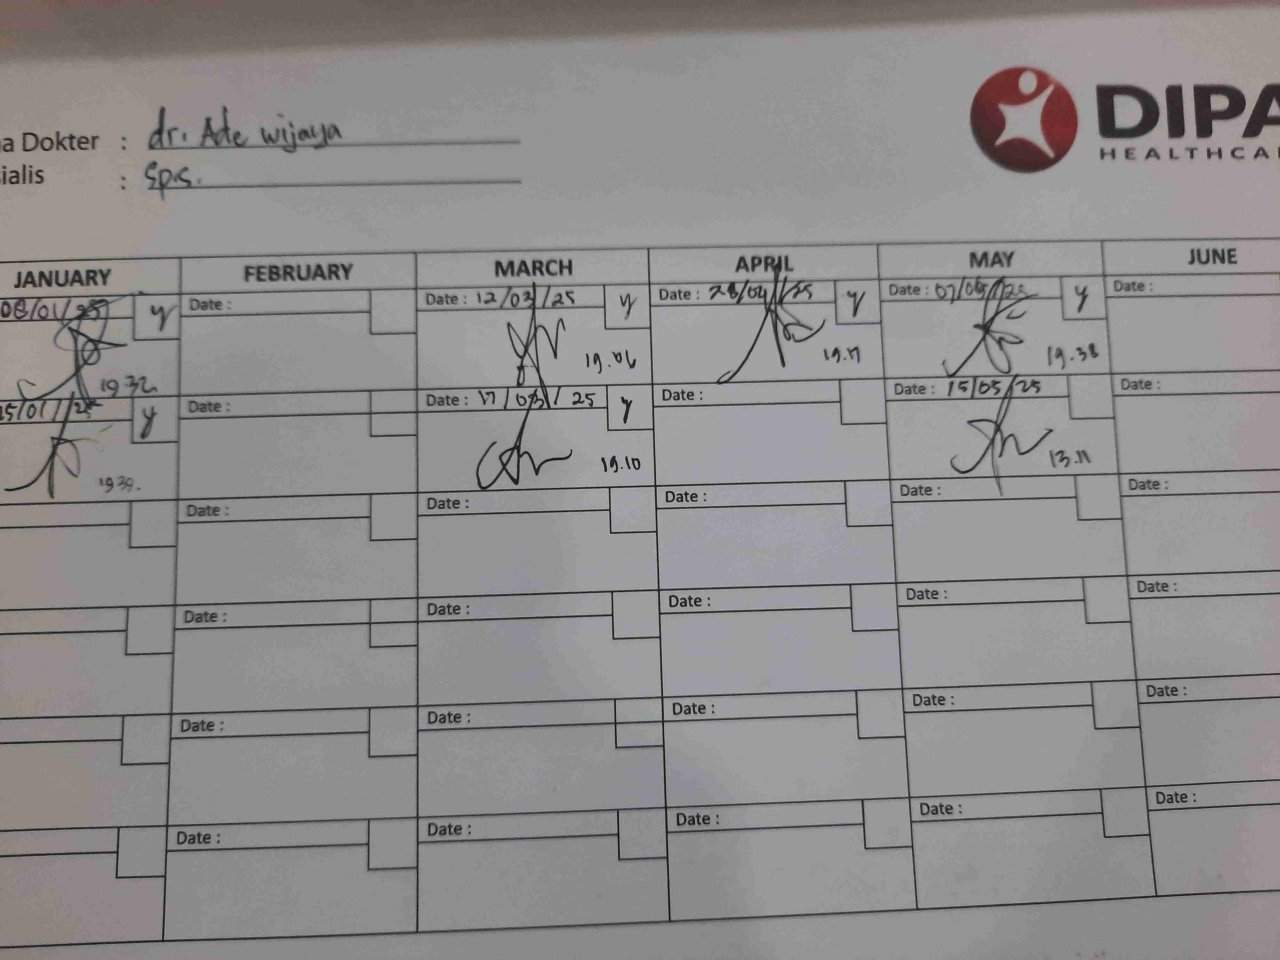 DIPA
HEALTHCA
a Dokter : dr. Ade wijaya
ialis : Sp.S.
JANUARY FEBRUARY MARCH APRIL MAY JUNE
08/01/25 y Date : Date : 12/03/25 y Date : 28/04/25 y Date : 07/05/25 y Date :
19.32 19.06 19.17 19.38
y Date : Date : 17/03/25 y Date : Date : 15/05/25 Date :
19.10 13.11
Date : Date : Date : Date : Date :
Date : Date : Date : Date : Date :
Date : Date : Date : Date : Date :
Date : Date : Date : Date : Date :